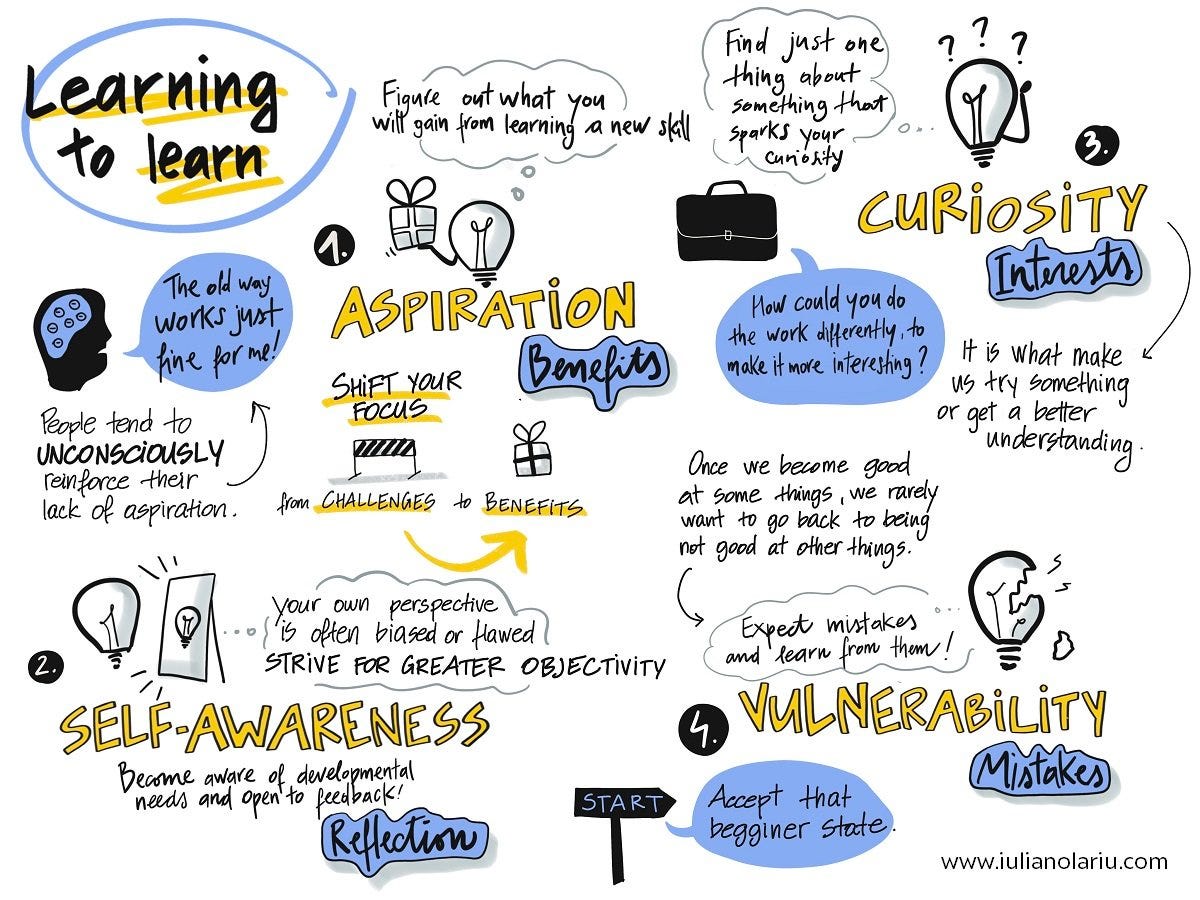 Learning
to learn
The old way
works just
fine for me!
People tend to
UNCONSCIOUSLY
reinforce their
lack of aspiration.
Figure out what you
will gain from learning a new skill
1.
ASPIRATION
Benefits
SHIFT YOUR
FOCUS
from CHALLENGES to BENEFITS
2.
your own perspective
is often biased or flawed
STRIVE FOR GREATER OBJECTIVITY
SELF-AWARENESS
Become aware of developmental
needs and open to feedback!
Reflection
Find just one
thing about
something that
sparks your
curiosity
? ? ?
3.
CURIOSITY
Interests
How could you do
the work differently, to
make it more interesting?
It is what make
us try something
or get a better
understanding.
Once we become good
at some things, we rarely
want to go back to being
not good at other things.
Expect mistakes
and learn from them!
4.
VULNERABILITY
Mistakes
START
Accept that
begginer state.
www.iulianolariu.com